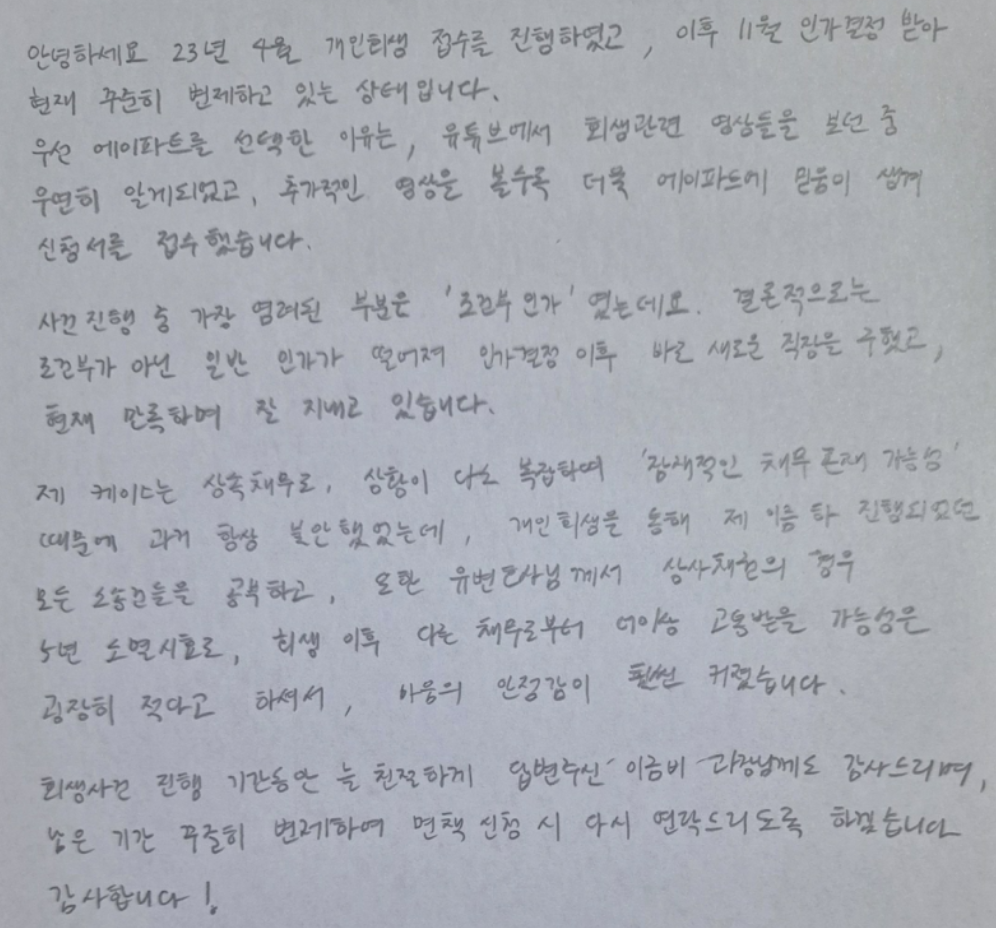 안녕하세요 23년 4월 개인회생 접수를 진행하였고, 이후 11월 인가결정 받아
현재 꾸준히 변제하고 있는 상태입니다.
우선 에이파트를 선택한 이유는, 유튜브에서 회생관련 영상들을 보던 중
우연히 알게되었고, 추가적인 영상을 볼수록 더욱 에이파트에 믿음이 생겨
신청서를 접수했습니다.
사건 진행 중 가장 염려된 부분은 '조건부 인가' 였는데요. 결론적으로는
조건부가 아닌 일반 인가가 떨어져 인가결정 이후 바로 새로운 직장을 구했고,
현재 만족하며 잘 지내고 있습니다.
제 케이스는 상속채무로, 상황이 다소 복잡하며 '잠재적인 채무 존재 가능성'
때문에 과거 항상 불안했었는데, 개인회생을 통해 제 이름 하 진행되었던
모든 소송건들을 공부하고, 또한 유변호사님께서 상사채권의 경우
5년 소멸시효로, 회생 이후 다른 채무로부터 더이상 고통받을 가능성은
굉장히 적다고 하셔서, 마음의 안정감이 훨씬 커졌습니다.
회생사건 진행 기간동안 늘 친절하게 답변주신 이금비 과장님께도 감사드리며,
남은 기간 꾸준히 변제하여 면책 신청 시 다시 연락드리도록 하겠습니다
감사합니다!